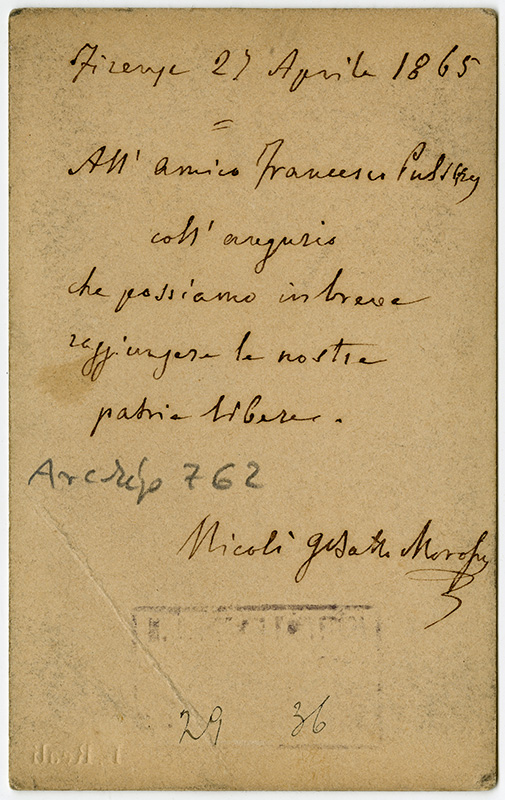 Firenze 27 Aprile 1865
=
All' amico Francesco
coll' augurio
che possiamo in breve
raggiungere la nostra
patria libera.
762
Nicolò
29 36